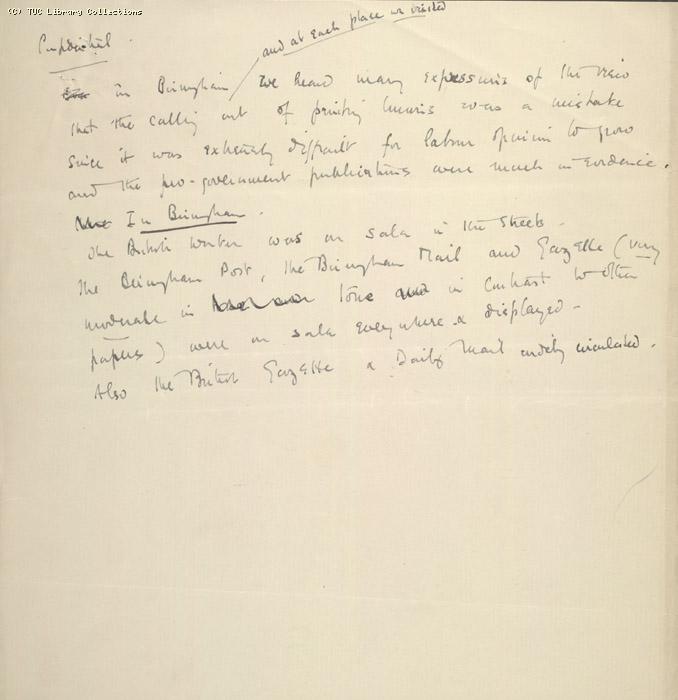 (C) TUC Library Collections
Confidential.
and at each place we visited
in Birmingham we heard many expressions of the view
that the calling out of printing unions was a mistake
since it was extremely difficult for labour opinion to grow
and the pro-government publications were much in evidence.
In Birmingham.
The British Worker was on sale in the streets.
The Birmingham Post, The Birmingham Mail and Gazette (very
moderate in tone and in contrast to other
papers) were on sale everywhere & displayed.
Also the British Gazette & Daily Mail widely circulated.